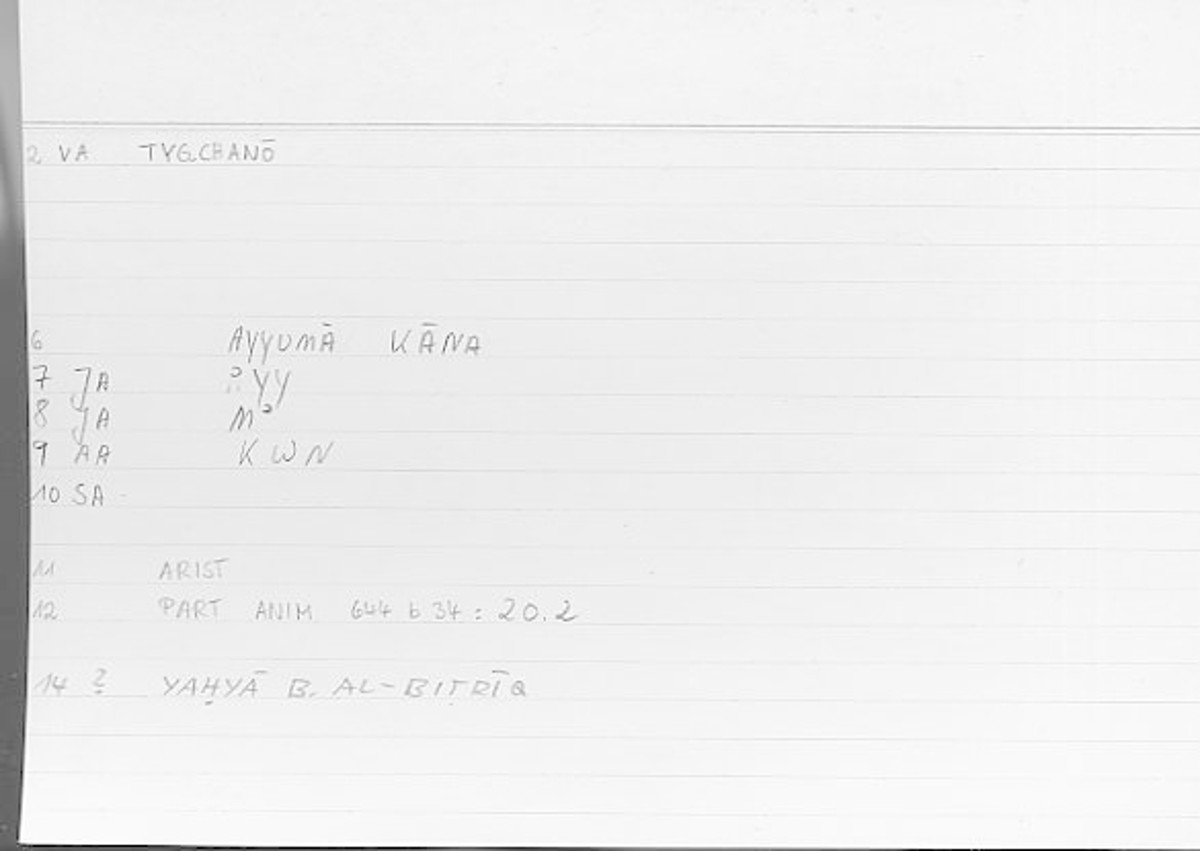 2 VA TYGCHANŌ
6 AYYUMĀ KĀNA
7 JA ʾYY
8 JA Mʾ
9 AA KWN
10 SA
11 ARIST
12 PART ANIM 644 b 34 : 20.2
14 ? YAḤYĀ B. AL-BIṬRĪQ